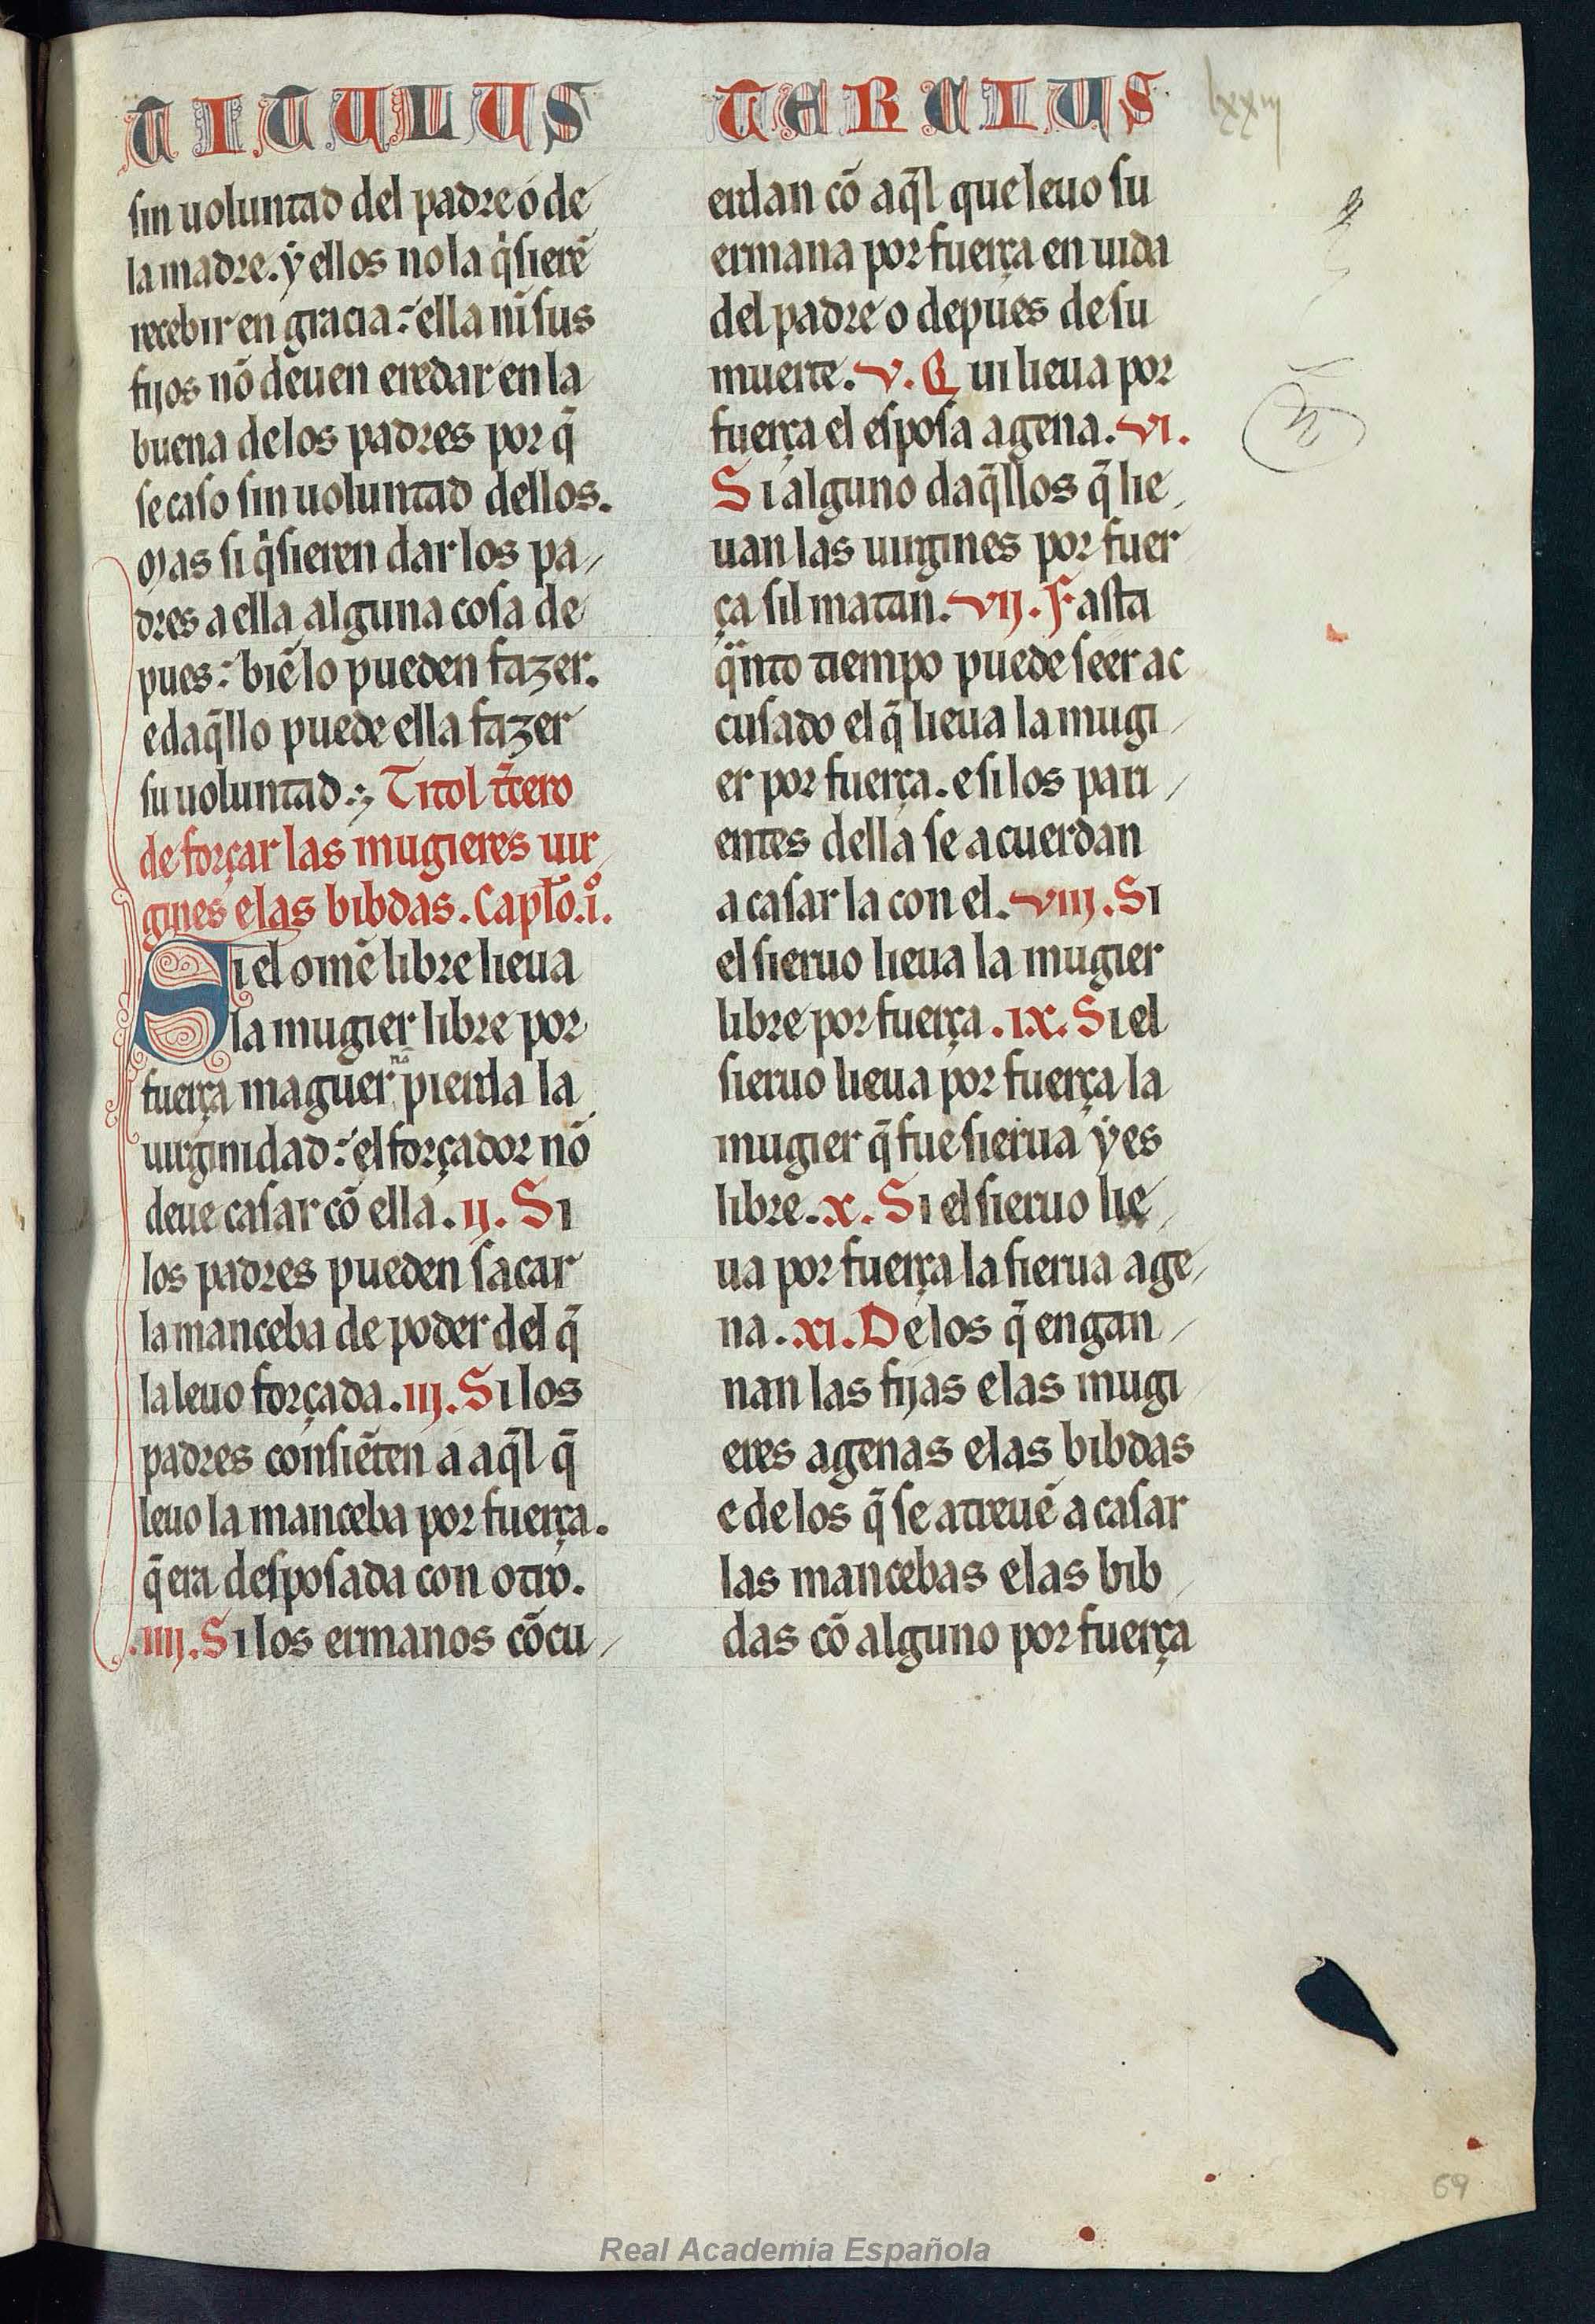 TITULUS TERCIUS
lxxiij
sin uoluntad del padre o de
la madre. ẏ ellos no la q̇sierẽ
recebir en gracia: ella ni sus
fijos nõ deuen eredar en la
buena delos padres por q̃
se caso sin uoluntad dellos.
Mas si q̇sieren dar los pa/
dres a ella alguna cosa de
pues: biẽ lo pueden fazer.
e daq̃llo puede ella fazer
su uoluntad. Titol t̃cero
de forçar las mugieres uir/
gines e las bibdas. Capl̃o.i̊.
Si el omẽ libre lieua
la mugier libre por
fuerça maguer nõ pierda la
uirginidad: el forçador nõ
deue casar cõ ella. ij. Si
los padres pueden sacar
la manceba de poder del q̃
la leuo forçada. iij. Si los
padres consiẽten a aq̃l q̃
leuo la manceba por fuerça.
q̃ era desposada con otro.
.iiij. Si los ermanos cõcu/
erdan cõ aq̃l que leuo su
ermana por fuerça en uida
del padre o depues de su
muerte. v. Qui lieua por
fuerça el esposa agena. vi.
Si alguno daq̃llos q̃ lie/
uan las uirgines por fuer
ça sil matan. vij. Fasta
q̃nto tiempo puede seer ac
cusado el q̃ lieua la mugi/
er por fuerça. e si los pari/
entes della se acuerdan
a casar la con el. viij. Si
el sieruo lieua la mugier
libre por fuerça. ix. Si el
sieruo lieua por fuerça la
mugier q̃ fue sierua ẏ es
libre. x. Si el sieruo lie/
ua por fuerça la sierua age/
na. xi. De los q̃ engan/
nan las fijas e las mugi
eres agenas e las bibdas
e de los q̃ se atreuẽ a casar
las mancebas e las bib/
das cõ alguno por fuerça
69
Real Academia Española